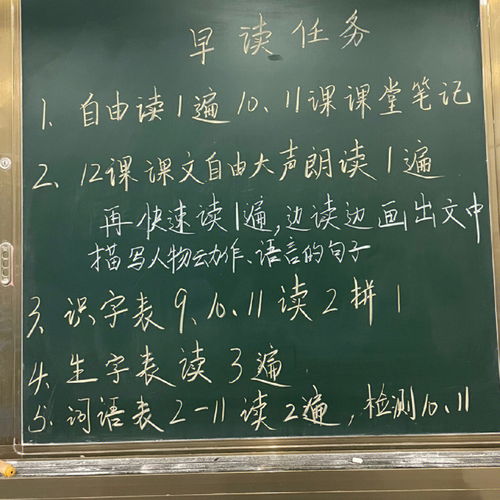 早读任务
1、自由读1遍10、11课课堂笔记
2、12课课文自由大声朗读1遍
再快速读1遍,边读边画出文中
描写人物动作、语言的句子
3、识字表9、10、11读2拼1
4、生字表读3遍
5、词语表2-11读2遍,检测10、11